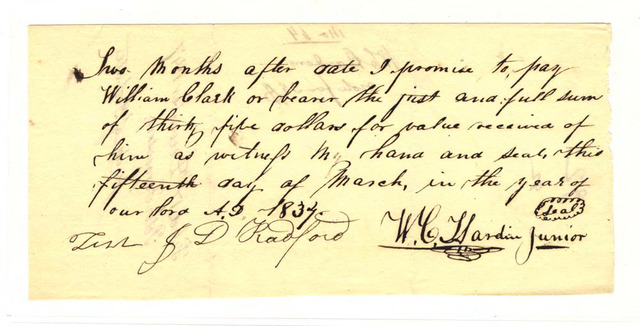 Two months after date I promise to pay
William Clark or bearer the just and full sum
of thirty five dollars for value received of
him as witness my hand and seal, this
fifteenth day of March, in the year of
our lord A.D 1837.
Test J D Radford
W. C. Hardin Junior
Seal